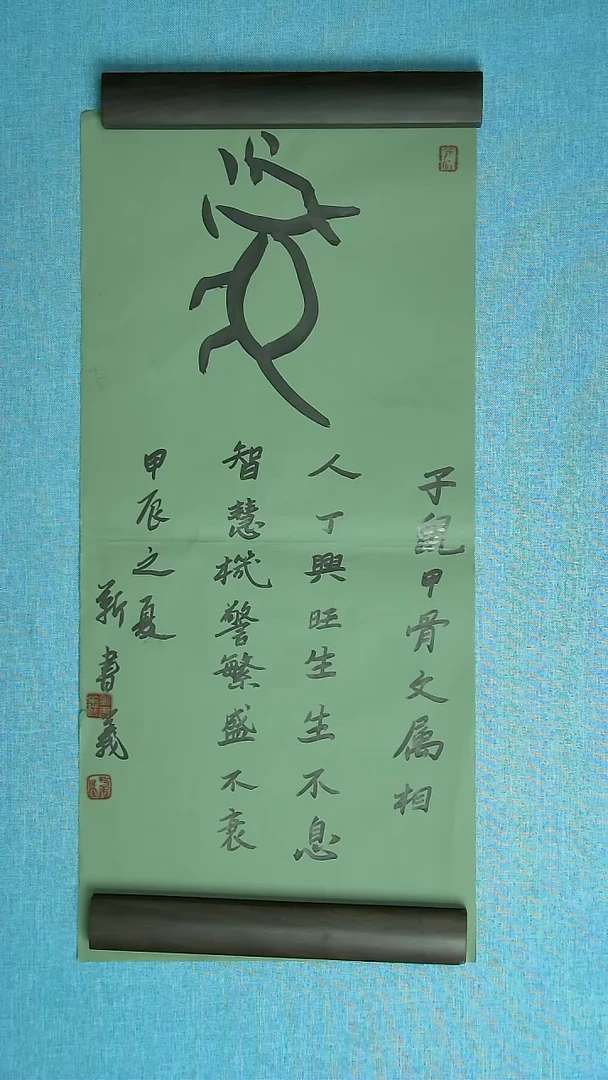 子鼠甲骨文属相
人丁興旺生生不息
智慧機警繁盛不衰
甲辰之夏
靳書義